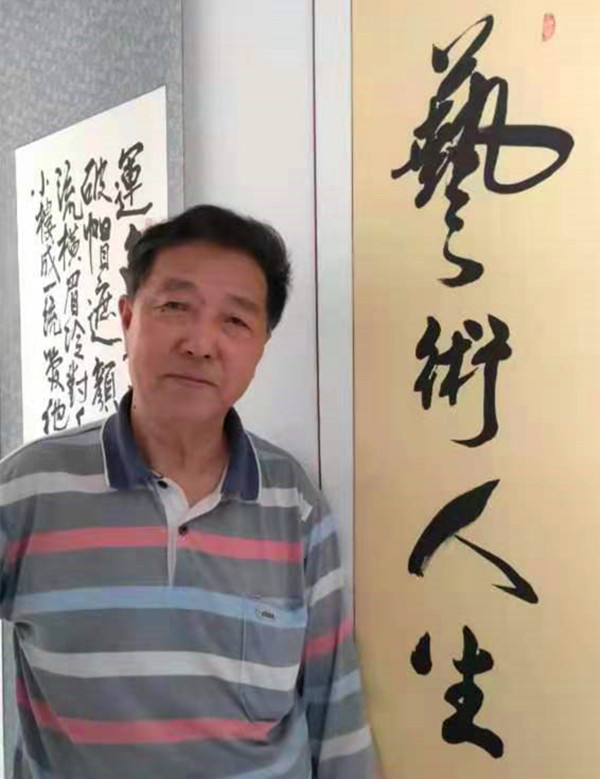 藝術人生
運
破帽遮顏
流橫眉冷對
小樓成一統管他